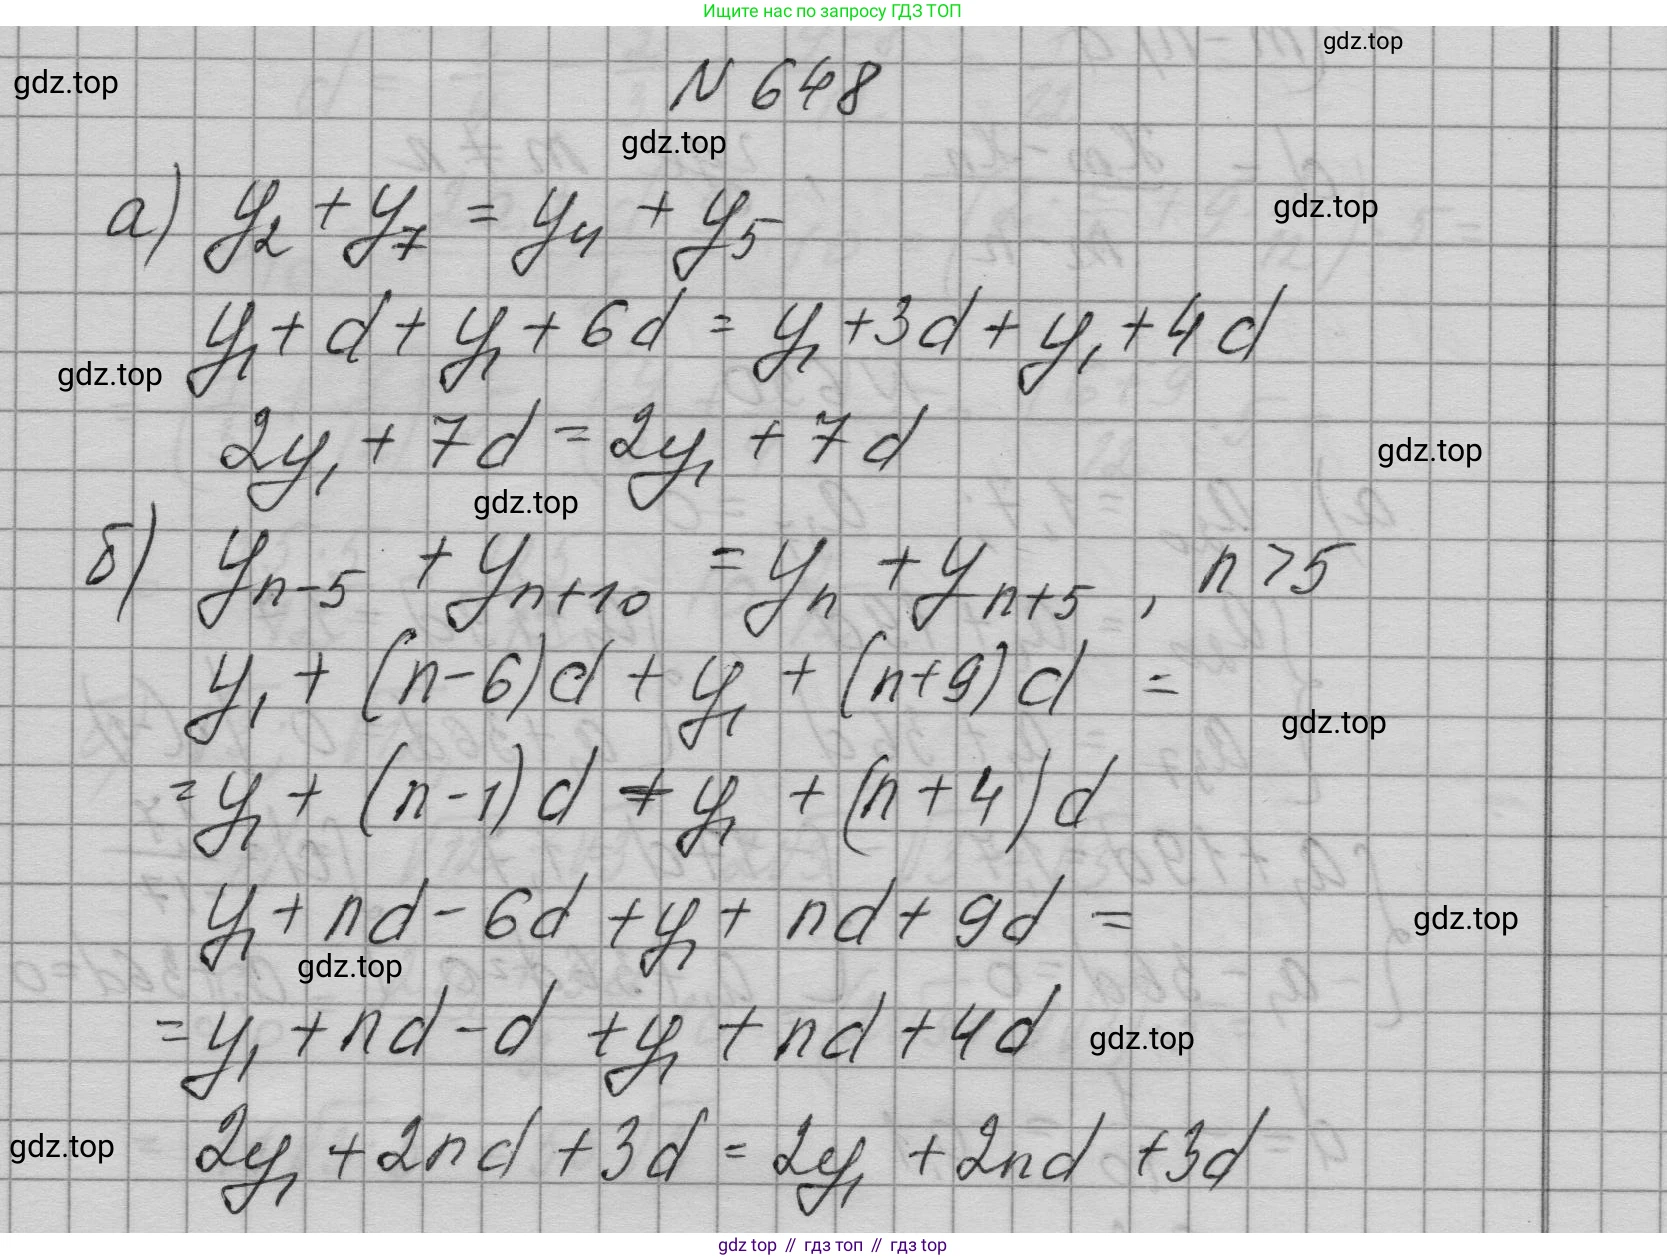 Ищите нас по запросу ГДЗ ТОП
gdz.top
gdz.top
N 648
gdz.top
а) y₂ + y₇ = y₄ + y₅
gdz.top
y₁ + d + y₁ + 6d = y₁ + 3d + y₁ + 4d
gdz.top
2y₁ + 7d = 2y₁ + 7d
gdz.top
gdz.top
б) yₙ₋₅ + yₙ₊₁₀ = yₙ + yₙ₊₅ , n > 5
y₁ + (n-6)d + y₁ + (n+9)d =
gdz.top
= y₁ + (n-1)d + y₁ + (n+4)d
y₁ + nd - 6d + y₁ + nd + 9d =
gdz.top
gdz.top
= y₁ + nd - d + y₁ + nd + 4d
gdz.top
2y₁ + 2nd + 3d = 2y₁ + 2nd + 3d
gdz.top
gdz top // гдз топ // gdz top